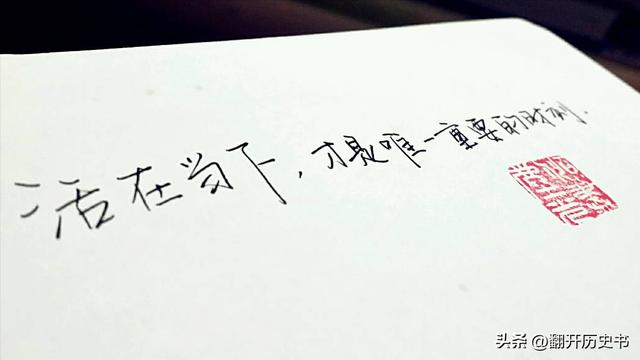 活在当下，才是唯一重要的时刻.
头条 @翻开历史书